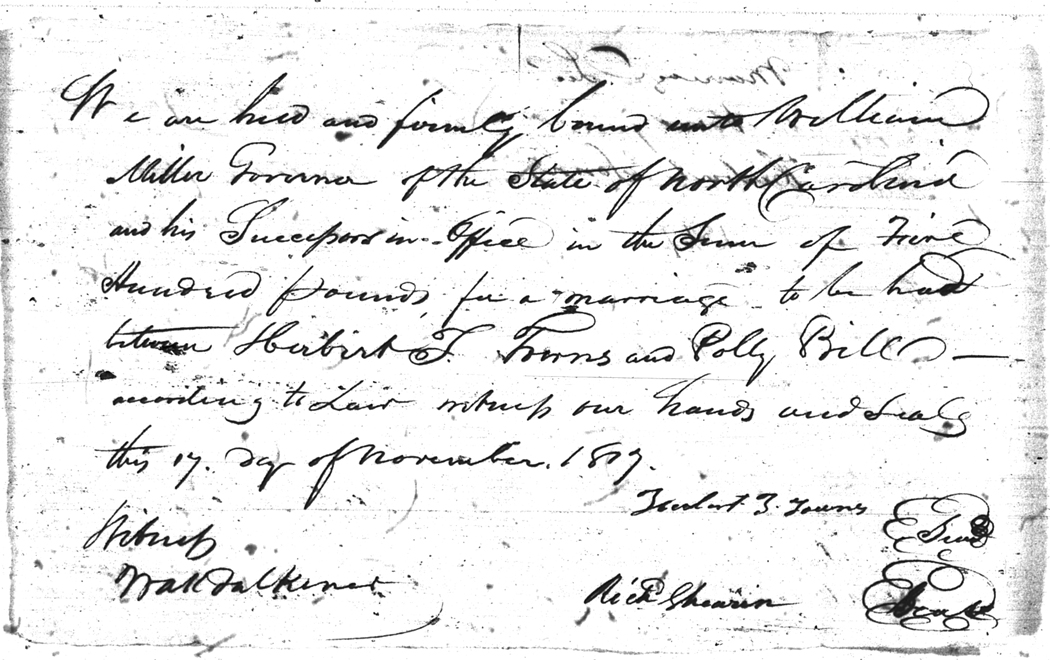 We are held and firmly bound unto William
Miller Governor of the State of North Carolina
and his Successors in Office in the Sum of Five
Hundred pounds, for a marriage to be had
between Herbert T. Towns and Polly Bell —
according to Law witness our hands and Seals
this 17. Day of November. 1817.
Herbert T. Towns Seal
Witness
Wm K Falkener
Richd Shearin Seal